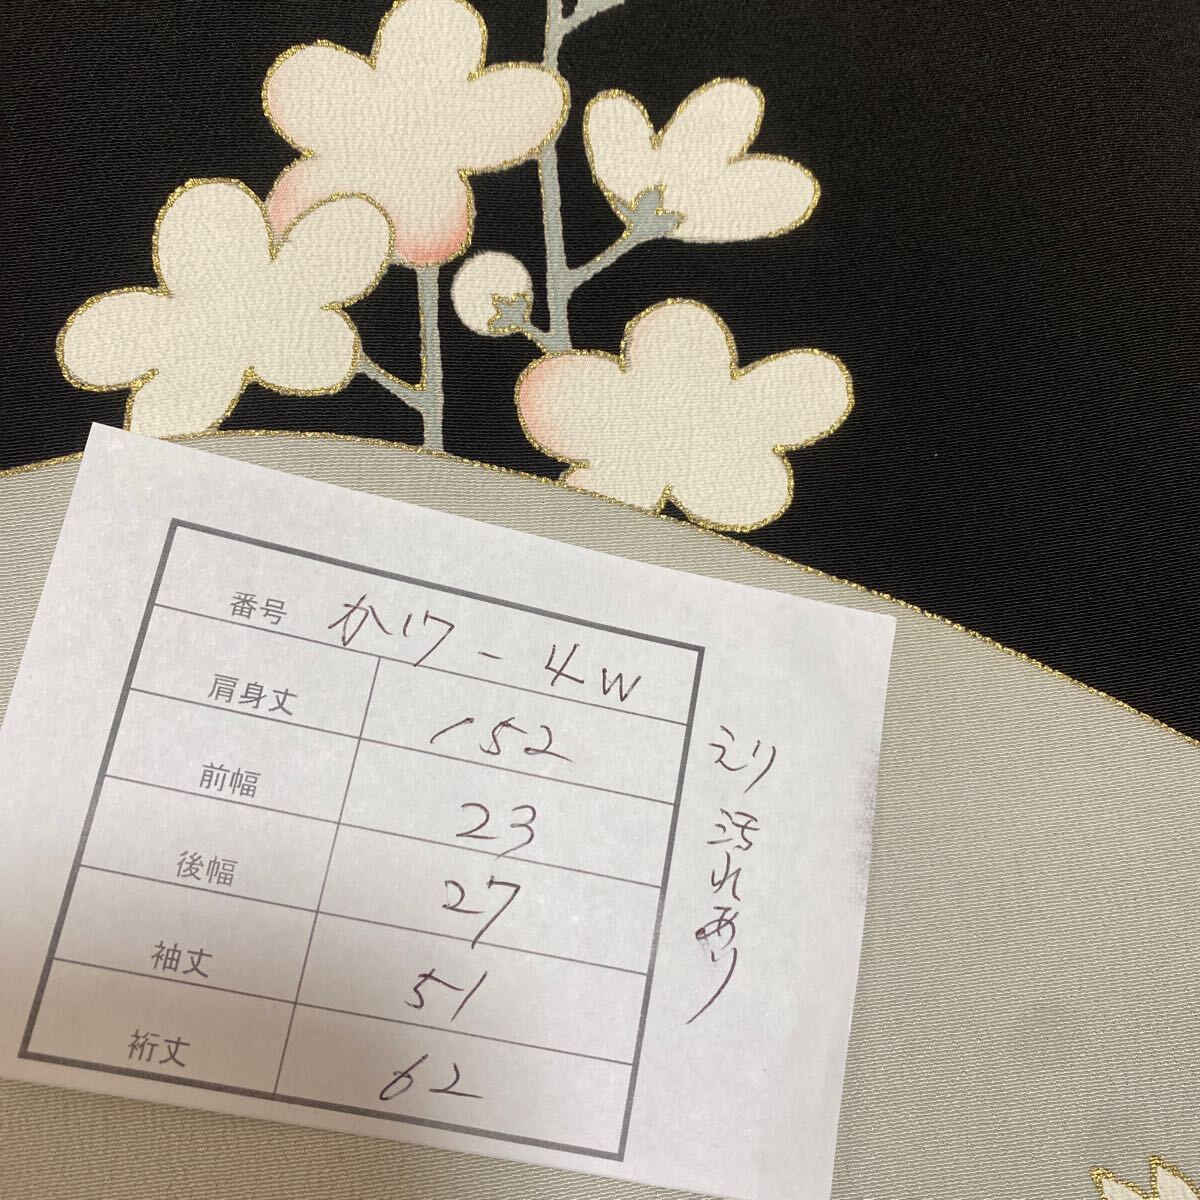 番号 か17-4W
肩身丈 152
前幅 23
後幅 27
袖丈 51
裄丈 62
えり汚れあり